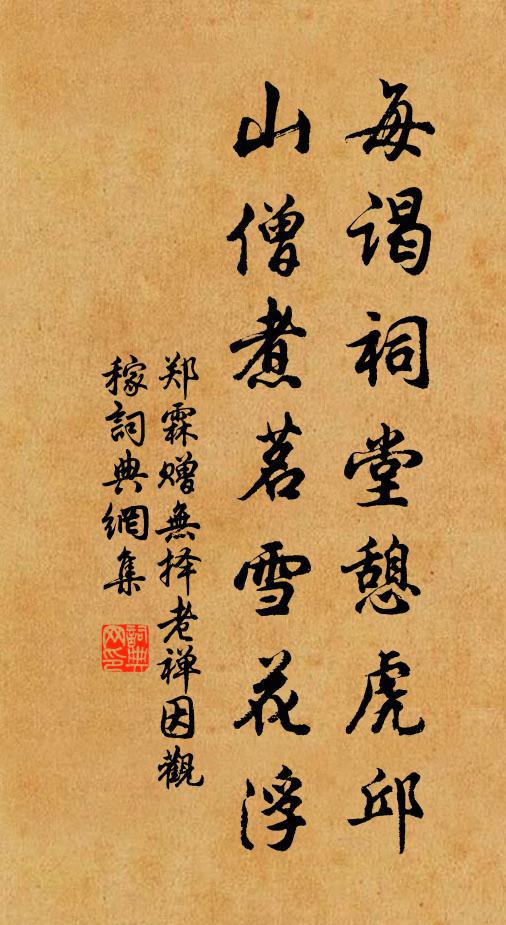 每谒祠堂憩虎邱
山僧煮茗雪花浮
郑霖赠無择老禅因觀
稼詞典網集
詞典
网印